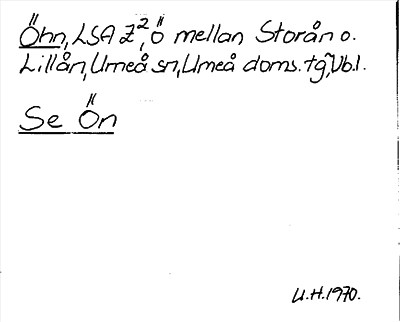 Öhn, LSA Z², ö mellan Storån o.
Lillån, Umeå sn, Umeå doms. tg, Vb.l.
Se Ön
U.H.1970.